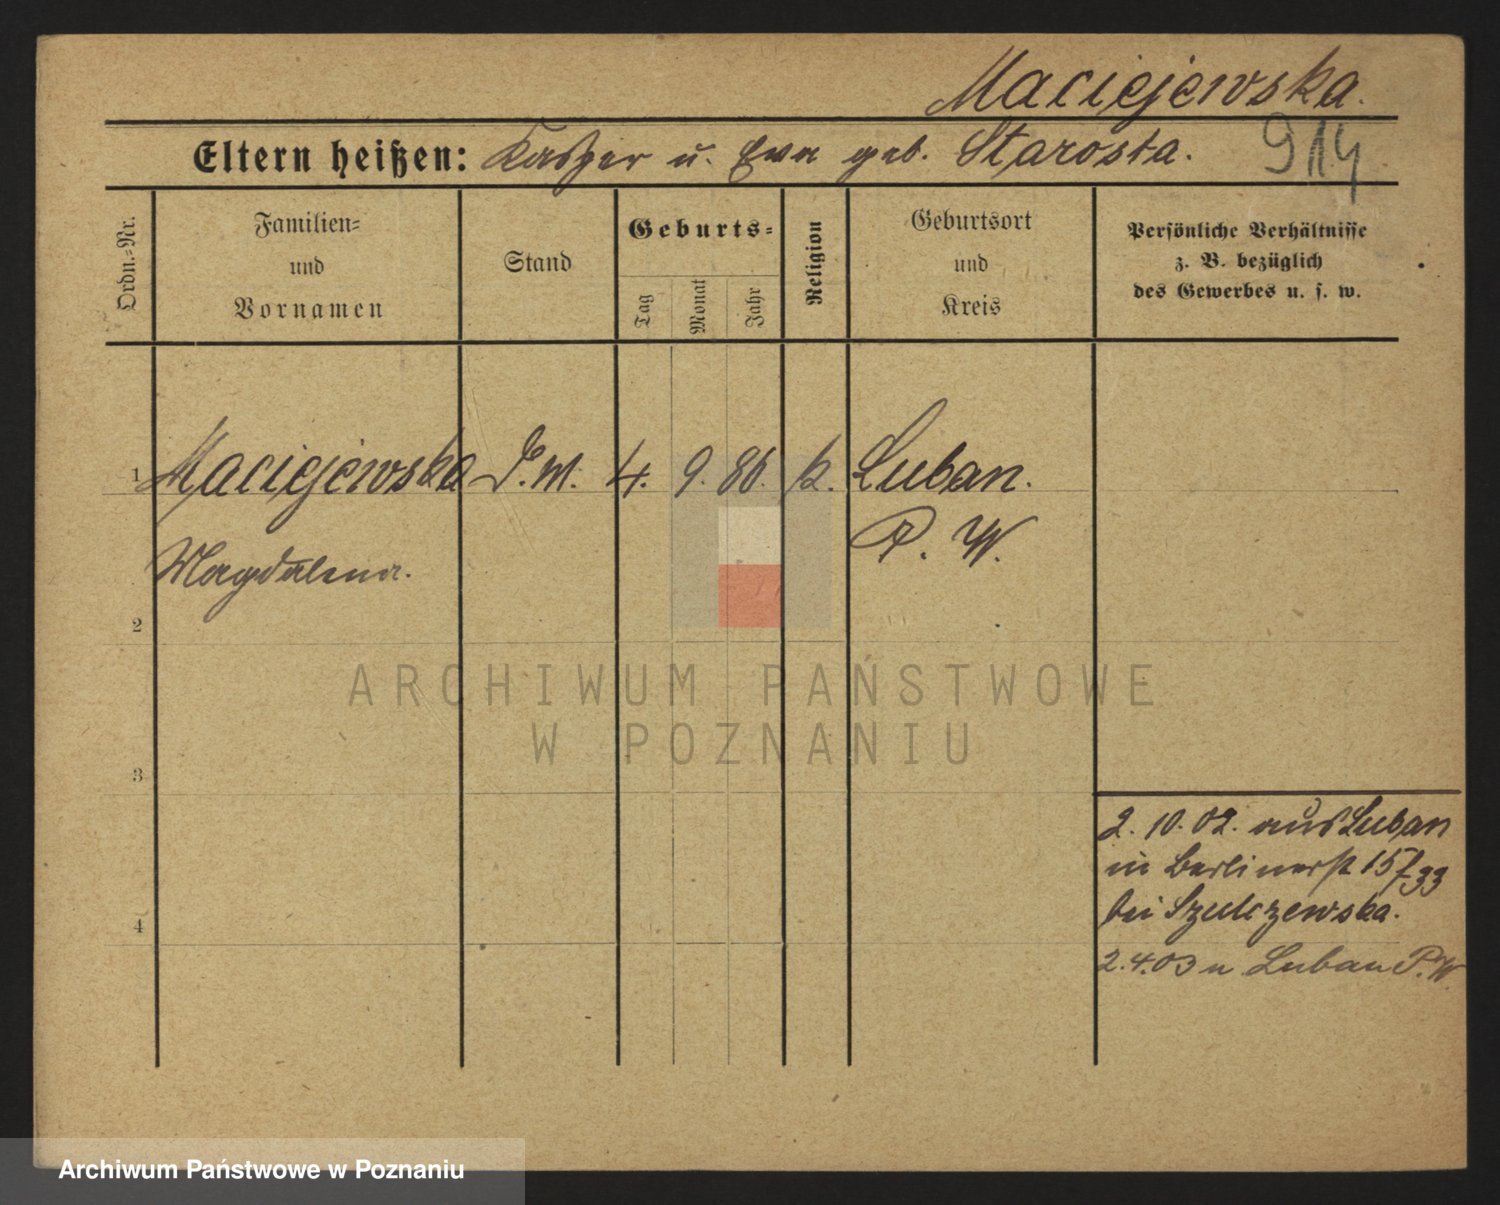 Maciejewska.
Eltern heißen: Kasper u. Eva geb. Starosta.
914
Ordn.-Nr.
Familien-
und
Vornamen
Stand
Geburts-
Tag
Monat
Jahr
Religion
Geburtsort
und
Kreis
Persönliche Verhältnisse
z. B. bezüglich
des Gewerbes u. s. w.
1 Maciejewska D.M. 4. 9. 86. k. Luban.
Magdalena. P. W.
2
3
4
2. 10. 02. aus Luban
in Berlinerst 15 f 33
bei Szulczewska.
2.4.03 n Luban P.W.
ARCHIWUM PAŃSTWOWE
W POZNANIU
Archiwum Państwowe w Poznaniu